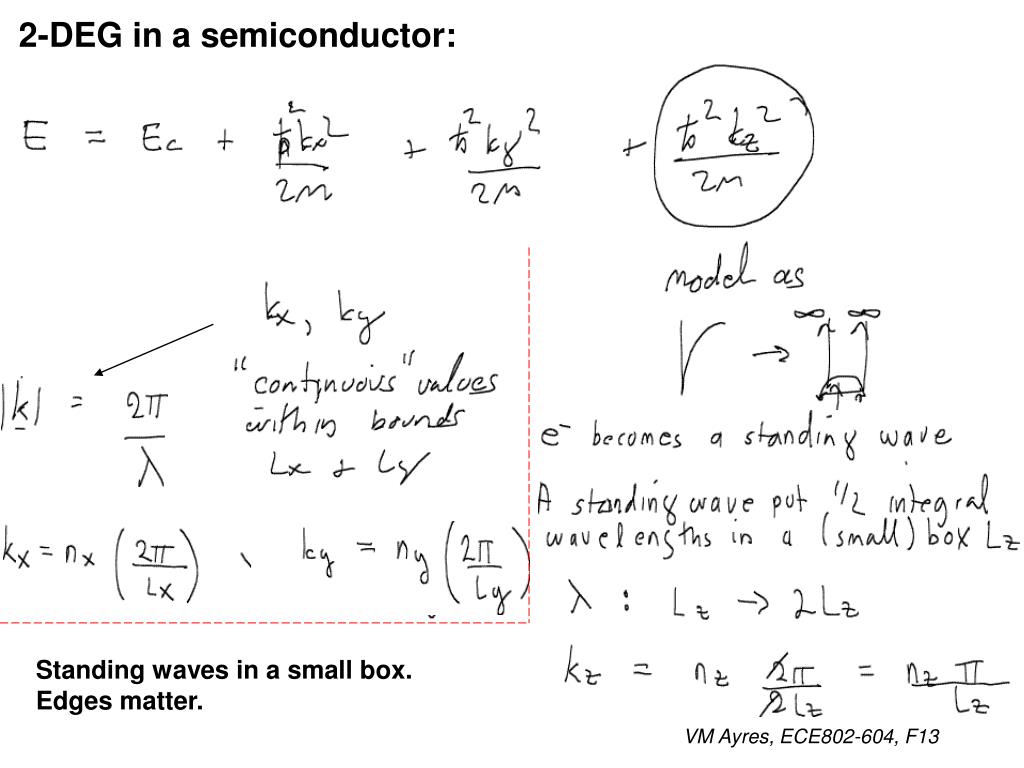 2-DEG in a semiconductor:
E = Ec + ħ²kx²/2m + ħ²ky²/2m + ħ²kz²/2m
model as
∞ ∞
→
kx, ky
"continuous" values
within bounds
Lx + Ly
|k| = 2π/λ
kx = nx (2π/Lx), ky = ny (2π/Ly)
e⁻ becomes a standing wave
A standing wave put 1/2 integral
wavelengths in a (small) box Lz
λ : Lz → 2Lz
kz = nz 2π/2Lz = nz π/Lz
Standing waves in a small box.
Edges matter.
VM Ayres, ECE802-604, F13